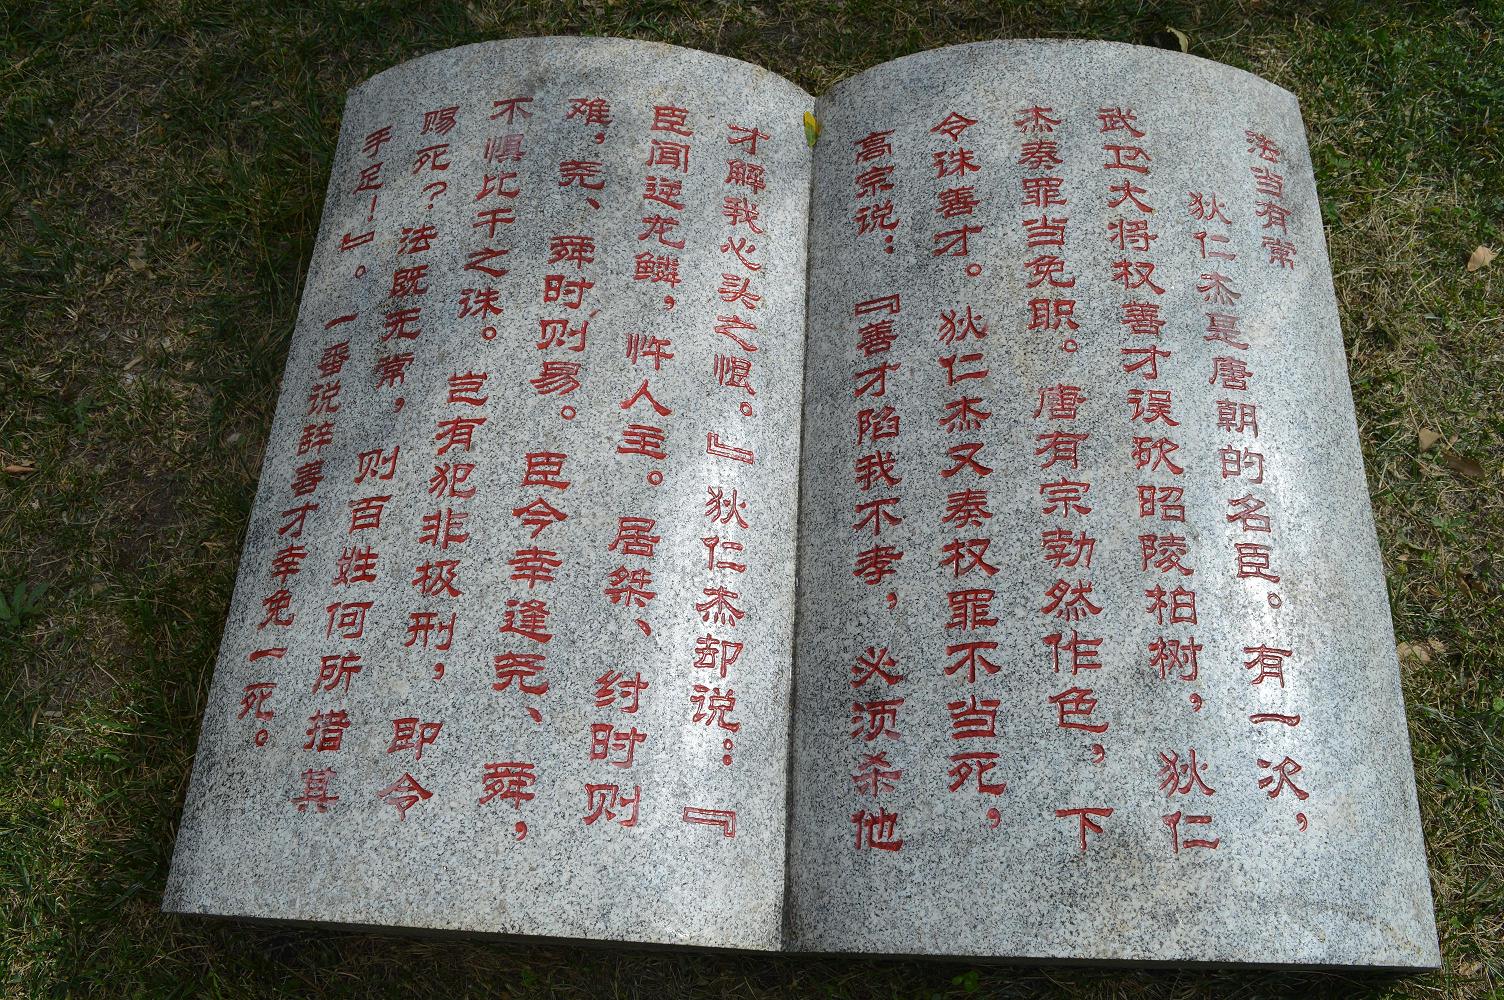 法当有常
狄仁杰是唐朝的名臣。有一次，
武卫大将权善才误砍昭陵柏树，狄仁
杰奏罪当免职。唐有宗勃然作色，下
令诛善才。狄仁杰又奏权罪不当死，
高宗说：『善才陷我不孝，必须杀他
才解我心头之恨。』狄仁杰却说：『
臣闻逆龙鳞，忤人主。居桀、纣时则
难，尧、舜时则易。臣今幸逢尧、舜，
不惧比干之诛。岂有犯非极刑，即令
赐死？法既无常，则百姓何所措其
手足！』。一番说辞善才幸免一死。